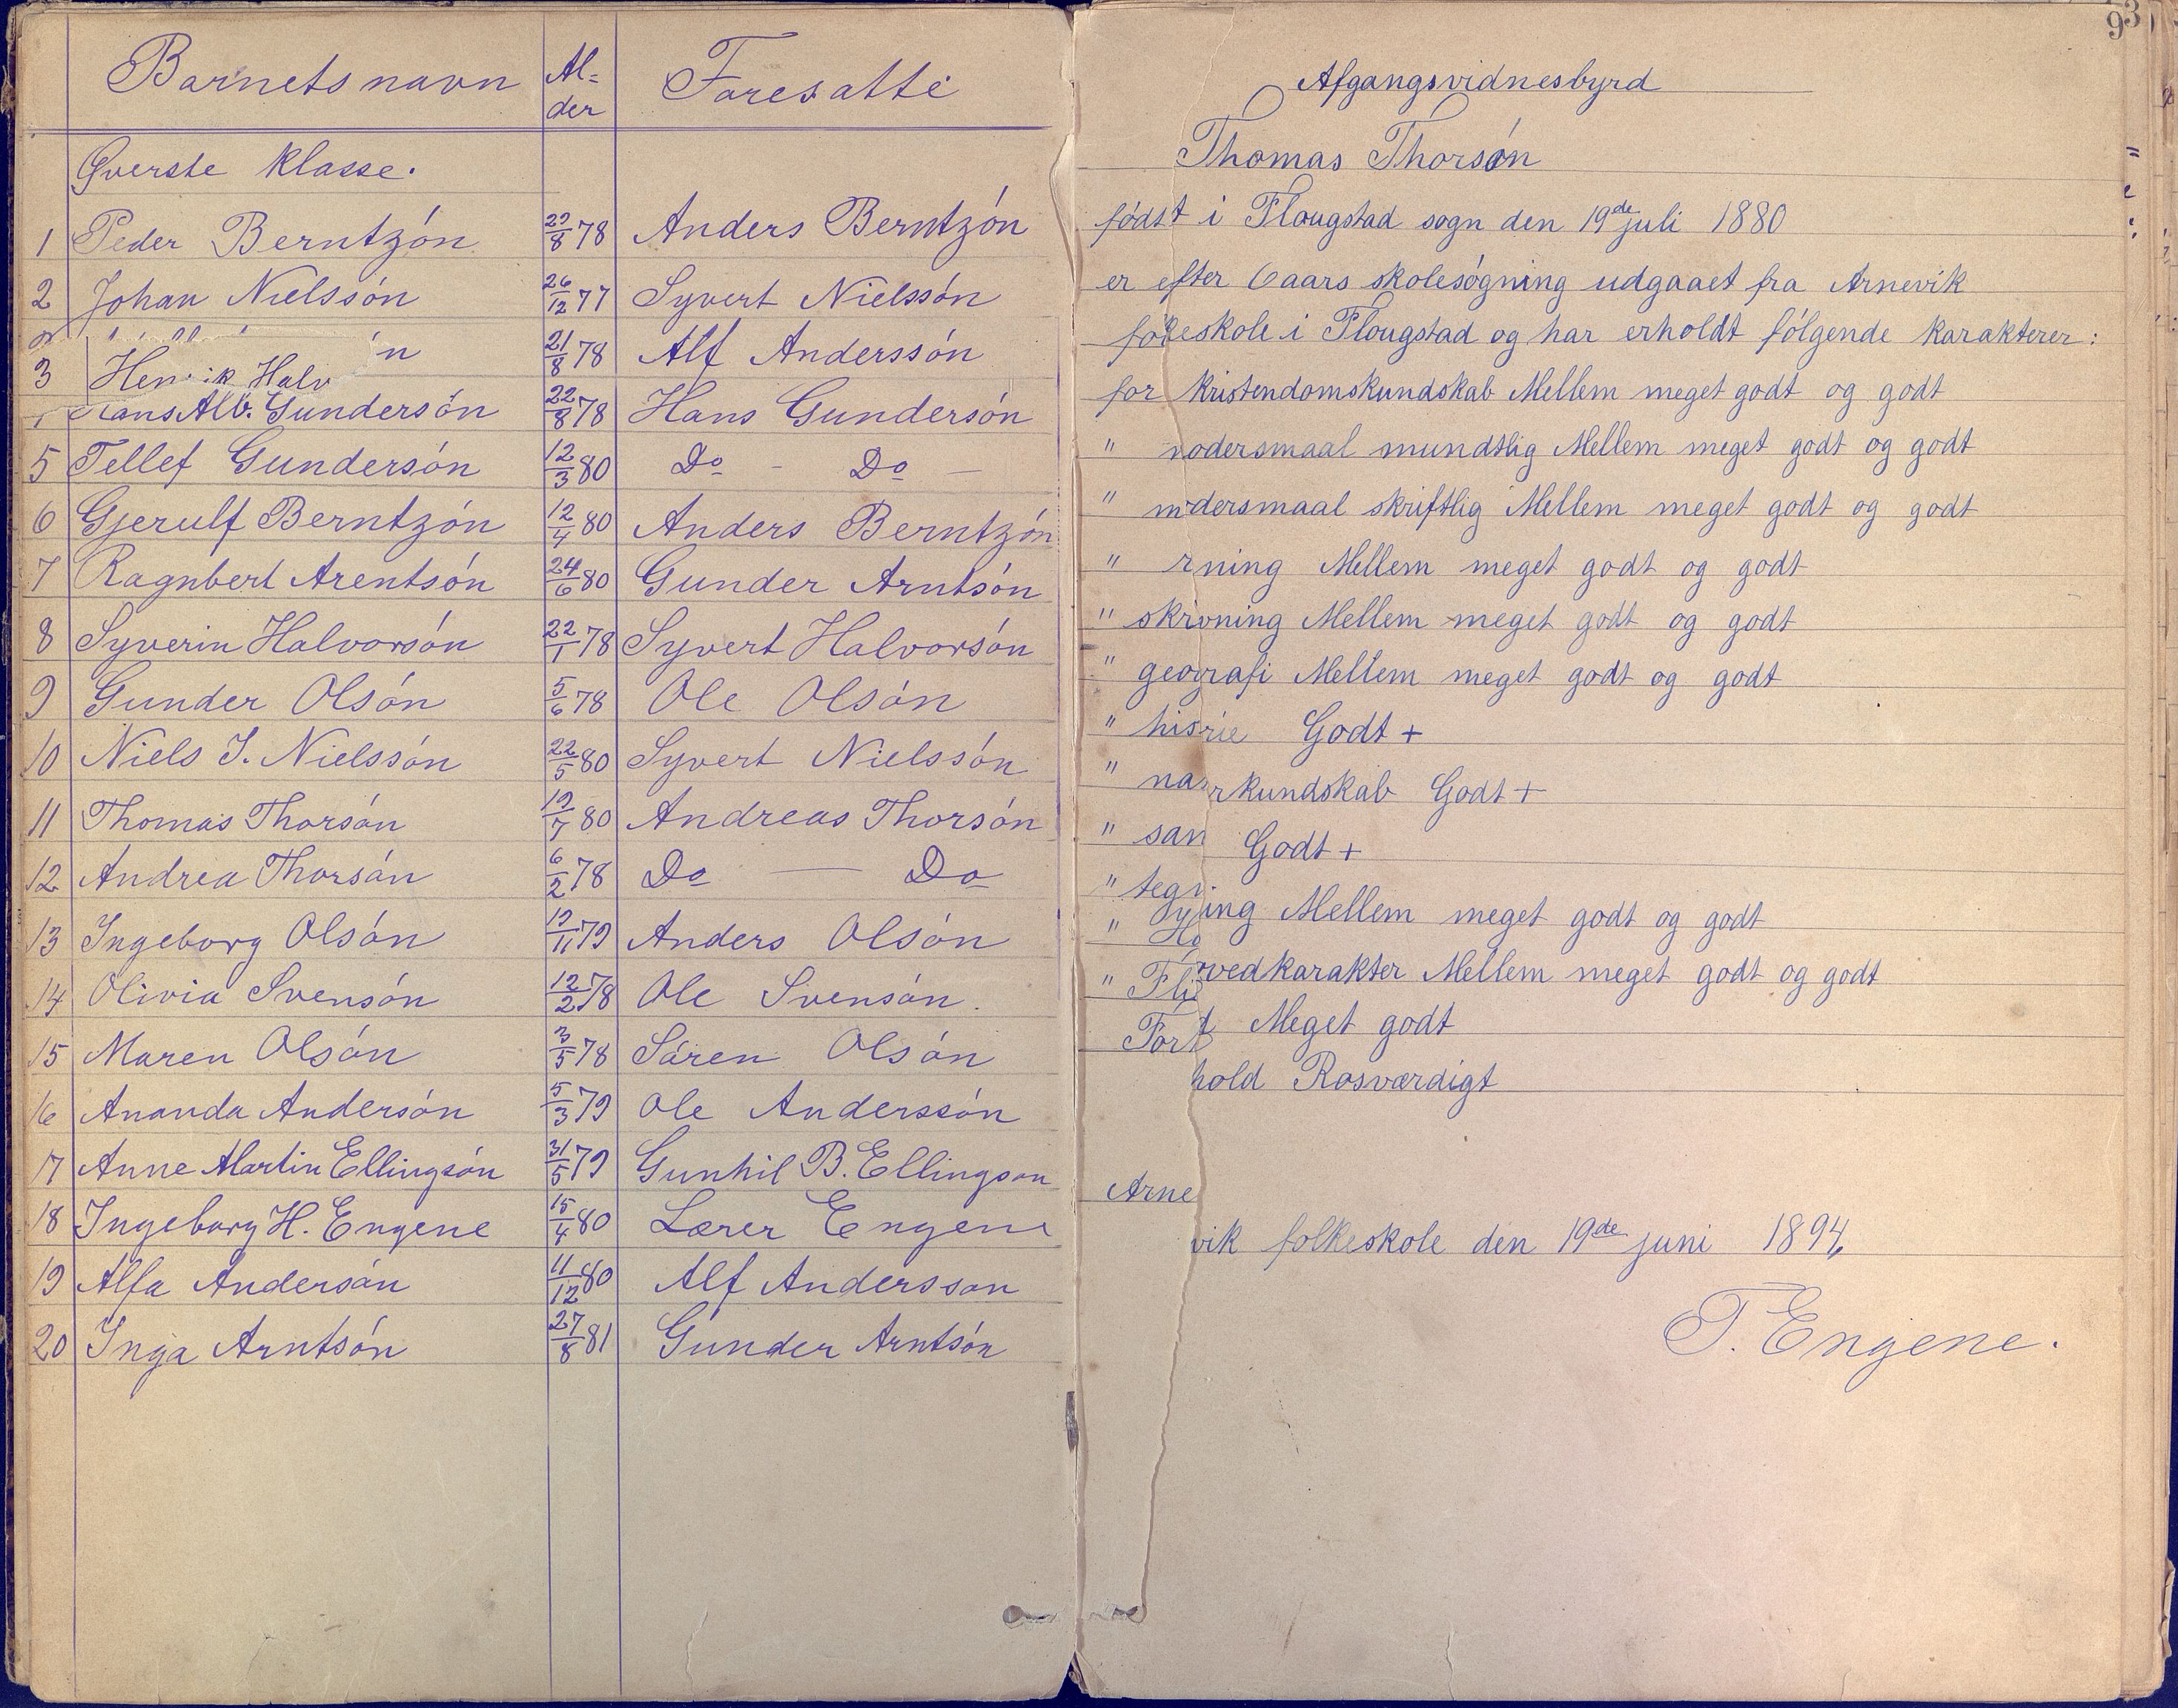 Barnets navn Al- Foresatte
der
Øverste klasse.
1 Peder Berntzón 22/8 78 Anders Berntzón
2 Johan Nielssón 26/12 77 Syvert Nielssón
n 21/8 78 Alf Anderssón
3 Henrik Halv
Hans Alb. Gundersón 22/8 78 Hans Gundersón
5 Tellef Gundersón 12/3 80 Do - Do -
6 Gjerulf Berntzón 12/4 80 Anders Berntzón
7 Ragnbert Arentsón 24/6 80 Gunder Arntsón
8 Syverin Halvorsón 22/1 78 Syvert Halvorsón
9 Gunder Olsón 5/6 78 Ole Olsón
10 Niels J. Nielssón 22/5 80 Syvert Nielssón
11 Thomas Thorsón 19/7 80 Andreas Thorsón
12 Andrea Thorsón 6/2 78 Do — Do
13 Ingeborg Olsón 19/11 79 Anders Olsón
14 Olivia Svensón 12/2 78 Ole Svensón.
15 Maren Olsón 3/5 78 Sóren Olsón
16 Ananda Andersón 5/3 79 Ole Anderssón
17 Anne Martin Ellingsón 31/5 79 Gunhil B. Ellingson
18 Ingeborg H. Engene 15/4 80 Lærer Engene
19 Alfa Andersón 11/12 80 Alf Andersson
20 Inga Arntsón 27/8 81 Gunder Arntsón
93
Afgangsvidnesbyrd
Thomas Thorsón
fódst i Flougstad sogn den 19de juli 1880
er efter 6 aars skolesógning udgaaet fra Arnevik
folkeskole i Flougstad og har erholdt fólgende karakterer:
for kristendomskundskab Mellem meget godt og godt
" modersmaal mundtlig Mellem meget godt og godt
" modersmaal skriftlig Mellem meget godt og godt
" rning Mellem meget godt og godt
" skrivning Mellem meget godt og godt
" geografi Mellem meget godt og godt
" hisrie Godt +
" narkundskab Godt +
" san Godt +
" tegning Mellem meget godt og godt
" Hovedkarakter Mellem meget godt og godt
" Flit Meget godt
Forhold Rosværdigt
Arne
vik folkeskole den 19de juni 1894
T. Engene.